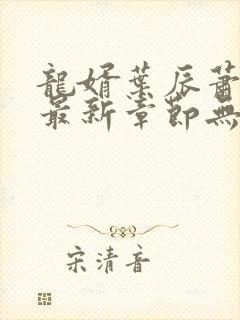 龍婿葉辰蕭
最新章節無
宋清音